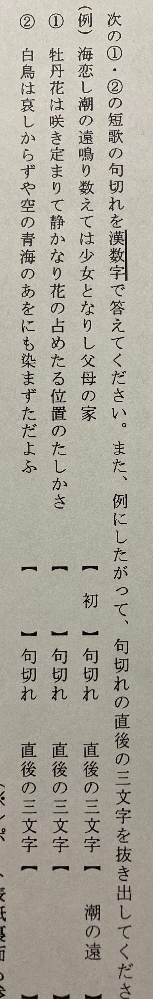 次の①・②の短歌の句切れを漢数字で答えてください。また、例にしたがって、句切れの直後の三文字を抜き出してくださ
(例) 海恋し潮の遠鳴り数えては少女となりし父母の家 【 初 】句切れ 直後の三文字【 潮の遠
① 牡丹花は咲き定まりて静かなり花の占めたる位置のたしかさ 【 】句切れ 直後の三文字【 】
② 白鳥は哀しからずや空の青海のあをにも染まずただよふ 【 】句切れ 直後の三文字【 】